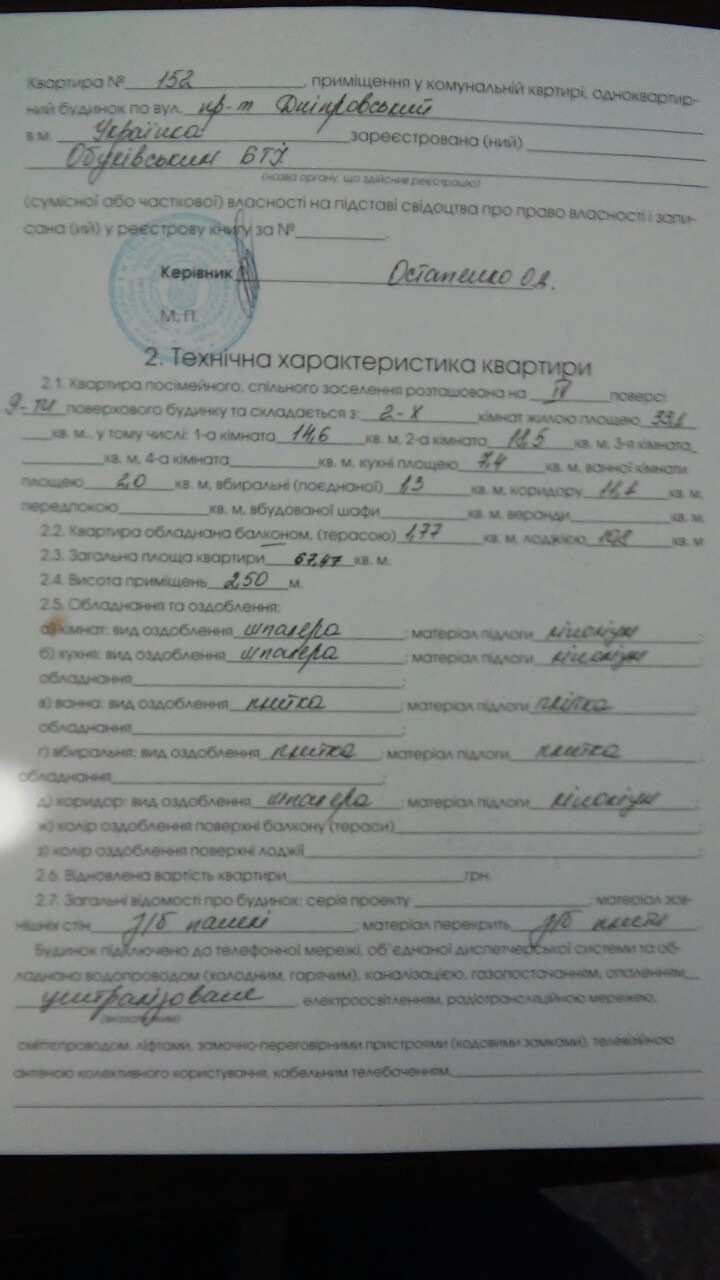 Квартира № 152 , приміщення у комунальній квртирі, одноквартир-
ний будинок по вул. пр-т Дніпровський
в м. Українка зареєстрована (ний)
Обухівським БТІ
(назва органу, що здійснив реєстрацію)
(сумісної або часткової) власності на підставі свідоцтва про право власності і запи-
сана (ий) у реєстрову книгу за № .
Керівник Остапенко О.А.
М. П.
2. Технічна характеристика квартири
2.1. Квартира посімейного, спільного заселення розташована на IV поверсі
9-ти поверхового будинку та складається з: 2-х кімнат жилою площею 33,1
кв. м., у тому числі: 1-а кімната 14,6 кв. м, 2-а кімната 18,5 кв. м, 3-я кімната
кв. м, 4-а кімната кв. м, кухні площею 7,4 кв. м, ванної кімнати
площею 2,0 кв. м, вбиральні (поєднаної) 1,3 кв. м, коридору кв. м,
передпокою кв. м, вбудованої шафи кв. м, веранди кв. м,
2.2. Квартира обладнана балконом, (терасою) 1,77 кв. м, лоджією кв. м
2.3. Загальна площа квартири 67,47 кв. м.
2.4. Висота приміщень 2,50 м.
2.5. Обладнання та оздоблення:
а) кімнат: вид оздоблення шпалера ; матеріал підлоги лінолеум ;
б) кухня: вид оздоблення шпалера ; матеріал підлоги лінолеум ;
обладнання ;
в) ванна: вид оздоблення плитка ; матеріал підлоги плітка ;
обладнання ;
г) вбиральня: вид оздоблення плитка ; матеріал підлоги плитка ;
обладнання ;
д) коридор: вид оздоблення шпалера ; матеріал підлоги лінолеум ;
ж) колір оздоблення поверхні балкону (тераси) ;
з) колір оздоблення поверхні лоджії .
2.6. Відновлена вартість квартири грн.
2.7. Загальні відомості про будинок: серія проекту ; матеріал зов-
нішніх стін з/б панелі ; матеріал перекрить з/б плити ;
Будинок підключено до телефонної мережі, об`єднаної диспетчерської системи та об-
ладнано водопроводом (холодним, гарячим), каналізацією, газопостачанням, опаленням
централізоване , електроосвітленням, радіотрансляційною мережею,
(вказати яким)
сміттєпроводом, ліфтами, замочно-переговірними пристроями (кодовими замками), телевізійною
антеною колективного користування, кабельним телебаченням,